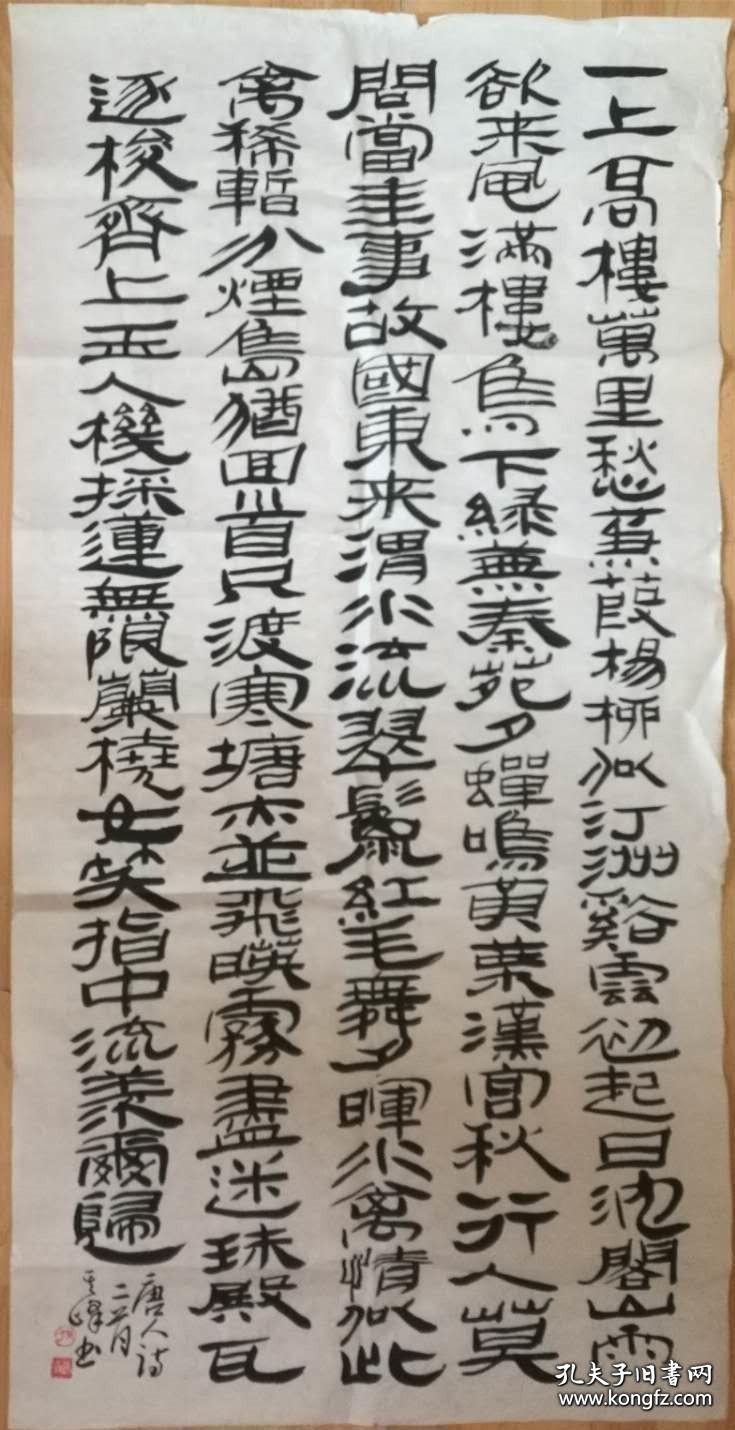 一上高樓萬里愁蒹葭楊柳似汀洲谿雲初起日沈閣山雨
欲来風滿樓鳥下綠蕪秦苑夕蟬鳴黃葉漢宮秋行人莫
問當年事故國東来渭水流翠鬣紅毛舞夕暉水禽情似此
禽稀暫分煙島猶回首只渡寒塘亦並飛映霧盡迷珠殿瓦
逐梭齊上玉人機採蓮無限蘭橈女笑指中流羨爾歸
唐人詩
其峰书
孔夫子旧书网
www.kongfz.com